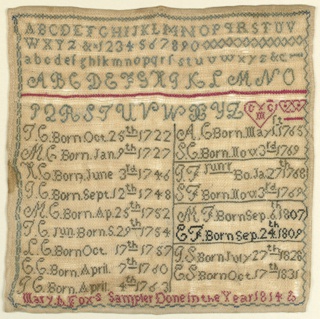 ABCDEFGHIJKLMNOPQRSTUV
WXYZ & 1234567890
abcdefghiklmnopqrsstuvwxyz&c
ABCDEFGHIKLMNO
PQRSTUVWXYZ
T C Born Oct 25th 1722
M C Born Jan 9th 1727
Born June 3rd 1746
C Born Sept 12th 1748
M C Born Ap. 25th 1752
T C Jun. Born S. 29th 1754
L C Born Oct 17th 1757
C Born April 7th 1760
C Born April 4th 1763
A C Born May 1st 1765
C Born Nov. 3rd 1769
F Junr Bo. Ja 27th 1768
F Born Nov. 3rd 1769
M F Born Sep. 6th 1807
E F Born Sep. 24th 1809
G S Born July 27th 1828
C S Born Oct 17th 1831
Mary Cox's Sampler Done in the Year 1814